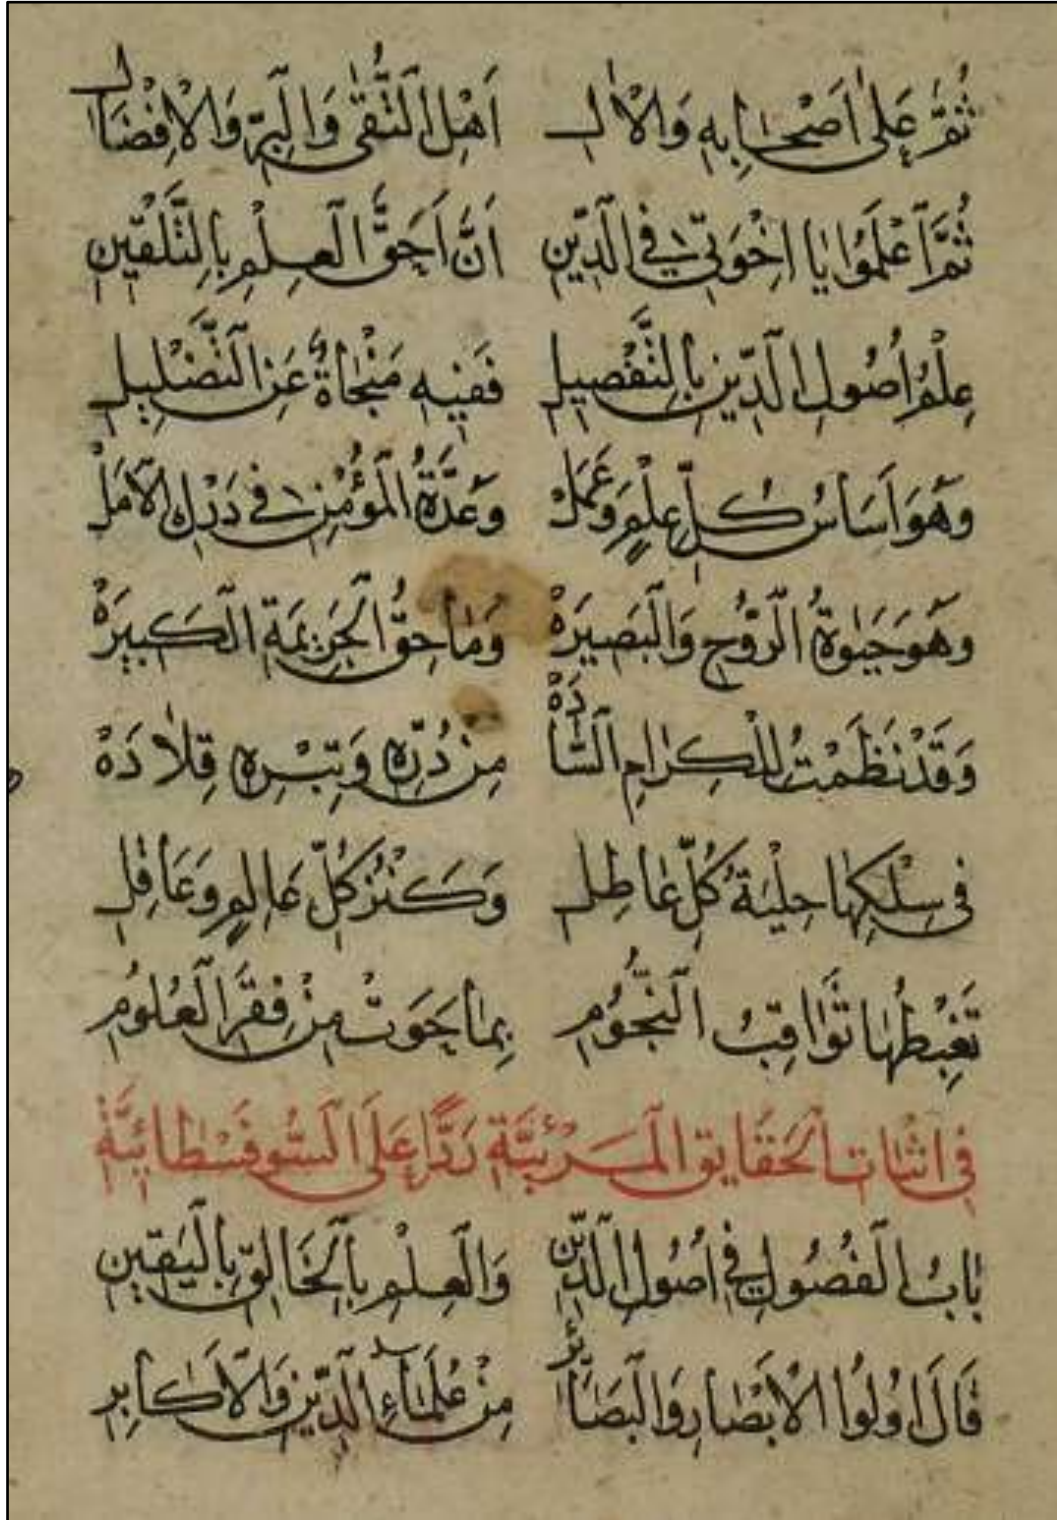 ثُمَّ عَلٰى اَصْحٰابِهِ وَالْاٰلِ اَهْلِ التُّقٰى وَالْبِرِّ وَالْاِفْضَالِ
ثُمَّ اعْلَمُوا يٰا اِخْوَتِى فِي الدِّينِ اَنَّ اَحَقَّ الْعِلْمِ بِالتَّلْقِينِ
عِلْمُ اُصُولِ الدِّينِ بِالتَّفْصِيلِ فَفِيهِ مَنْجٰاةٌ عَنِ التَّضْلِيلِ
وَهُوَ اَسَاسُ كُلِّ عِلْمٍ وَعَمَلْ وَعُدَّةُ الْمُؤْمِنِ فِى دَرْكِ الْاَمَلْ
وَهُوَ حَيٰوةُ الرُّوحِ وَالْبَصِيرَةْ وَمٰاحِقُ الْجَرِيمَةِ الْكَبِيرَةْ
وَقَدْ نَظَمْتُ لِلْكِرٰامِ السَّادَةْ مِنْ دُرِّهِ وَتِبْرِهِ قِلَادَةْ
فِى سِلْكِهٰا حِلْيَةُ كُلِّ عٰاطِلِ وَكَنْزُ كُلِّ عَالِمٍ وَعَاقِلِ
تَغْبِطُهٰا ثَوٰاقِبُ النُّجُومِ بِمٰا حَوَتْ مِنْ فِقَرِ الْعُلُومِ
فِى اثْبَات الْحَقَايِق الْمَرْئِيَّةِ رَدًّا عَلَى السُّوفَسْطٰائِيَّةْ
بٰابُ الْفُصُولِ فِى اُصُولِ الدِّينِ وَالْعِلْمِ بِالْخَالِقِ بِالْيَقِينِ
قَالَ اُولُوا الْاَبْصٰارِ وَالْبَصَائِرْ مِنْ عُلَمٰاءِ الدِّينِ وَالْاَكَابِرِ